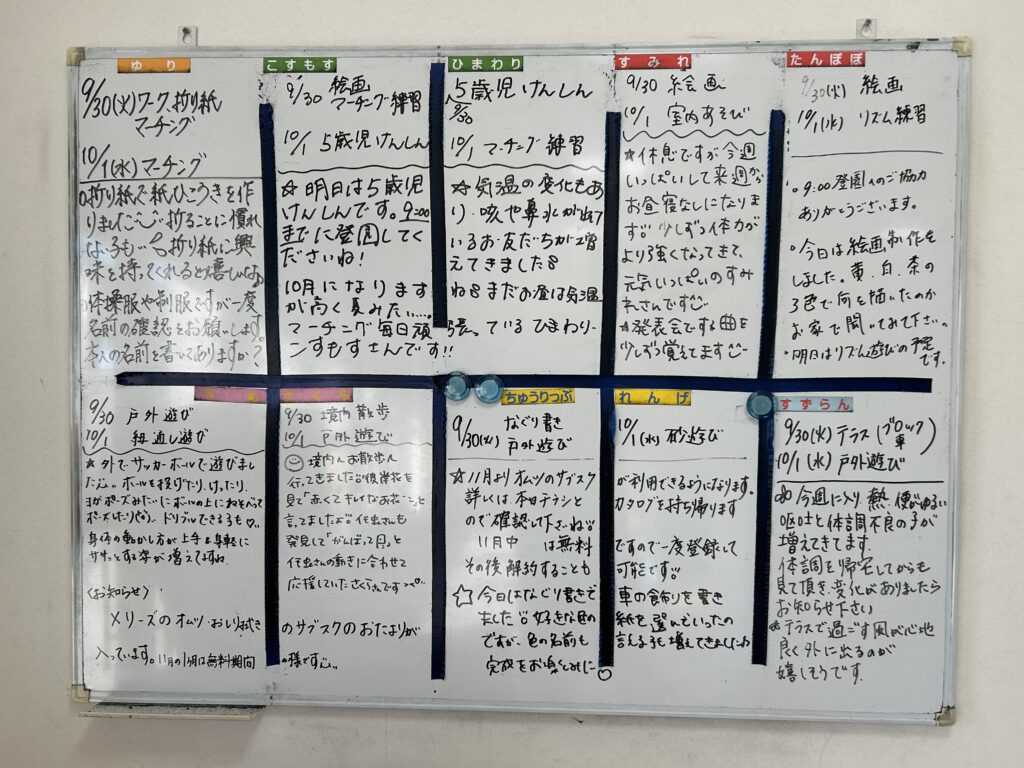 ゆり
9/30(火)ワーク、折り紙
マーチング
10/1(水)マーチング
折り紙で紙ひこうきを作
りました 折ることに慣れ
ない子も 折り紙に興
味を持ってくれると嬉しいなぁ
体操服や制服ですが一度
名前の確認をお願いします。
本人の名前を書いてありますか?
こすもす
9/30 絵画
マーチング練習
10/1 5歳児けんしん
☆明日は5歳児
けんしんです。9:00
までに登園してく
ださいね!
10月になります
が高く夏みたい…
マーチング毎日頑
こすもすさんです!!
ひまわり
5歳児けんしん
9/30
10/1 マーチング練習
☆気温の変化もあ
り、咳や鼻水が出て
いるお友だちが増
えてきました
ねまだお昼は気温
張っているひまわり、
すみれ
9/30 絵画
10/1 室内あそび
☆休息ですが今週
いっぱいして来週から
お昼寝なしになりま
す 少しずつ体力が
より強くなってきて、
元気いっぱいのすみ
れさんです
☆発表会でする曲を
少しずつ覚えてます
たんぽぽ
9/30(火) 絵画
10/1(水) リズム練習
・9:00登園へのご協力
ありがとうございます。
・今日は絵画制作を
しました。黄、白、茶の
3色で何を描いたのか
お家で聞いてみて下さい。
・明日はリズム遊びの予定
です。
9/30 戸外遊び
10/1 紐通し遊び
★外でサッカーボールで遊びまし
た ボールを投げたり、けったり、
ヨガポーズみたいにボールの上にねそべって
ポーズしたり ドリブルできる子も
身体の動かし方が上手&身軽に
ササッとする姿が増えてますね
〈お知らせ〉
メリーズのオムツ・おしり拭き
入っています。11月の1ヶ月は無料期間
9/30 境内散歩
10/1 戸外遊び
境内へお散歩へ
行ってきました 彼岸花を
見て「赤くてきれいなお花〜」と
言ってました 虫さんも
発見して「がんばって〜」と
虫さんの動きに合わせて
応援していたさくらさんです
のサブスクのおたよりが
の様です
ちゅうりっぷ
なぐり書き
9/30(火) 戸外遊び
☆11月よりオムツのサブスク
詳しくは、本日チラシと
ので確認して下さいね
11月中 は無料
その後解約することも
☆今日はなぐり書きで
ました 好きな色の
ですが、色の名前も
完成をお楽しみに♡
れんげ
10/1(水)砂遊び
が利用できるようになります。
カタログを持ち帰ります
ですので一度登録して
可能です
車の飾りを書き
紙を選んでいったの
言える子も増えてきました
すずらん
9/30(火)テラス(ブロック 車)
10/1(水)戸外遊び
今週に入り、熱、便がゆるい
嘔吐と体調不良の子が
増えてきてます。
体調を帰宅してからも
見て頂き、変化がありましたら
お知らせ下さい
☆テラスで過ごす風が心地
良く外に出るのが
嬉しそうです。